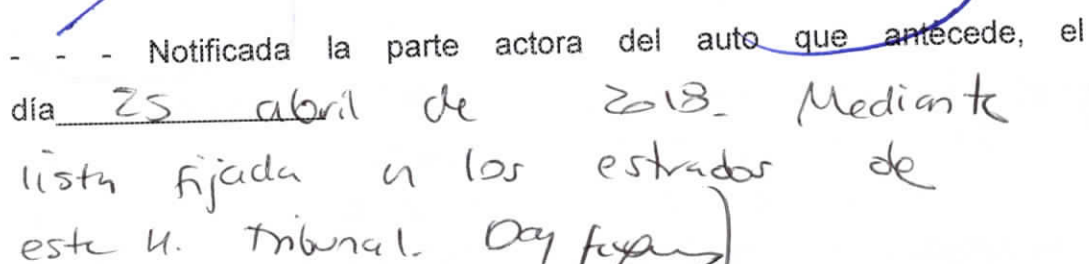 - - - Notificada la parte actora del auto que antecede, el
día 25 abril de 2018. Mediante
lista fijada en los estrados de
este H. Tribunal. Doy fe